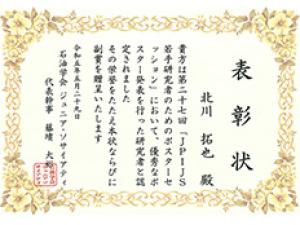 表彰状
北川 拓也 殿
貴方は第二十七回「JPIJS
若手研究者のためのポスターセ
ッション」において、優秀なポ
スター発表を行った研究者と認
定されました
その栄誉をたたえ本状ならびに
副賞を贈呈いたします
令和五年五月二十九日
石油学会 ジュニア・ソサイアティ
代表幹事 藤墳 大